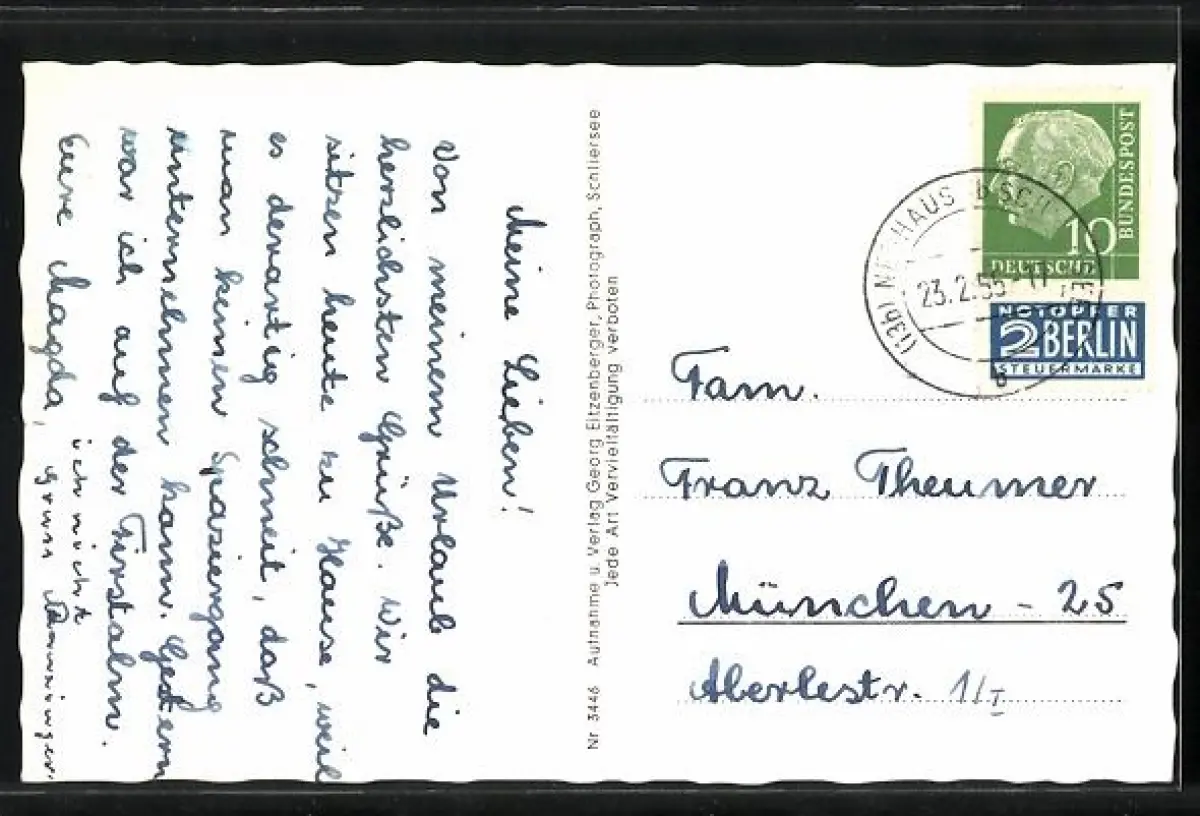 Meine Lieben!
Von meinem Urlaub die
herzlichsten Grüße. Wir
sitzen heute zu Hause, weil
es derartig schneit, daß
man keinen Spaziergang
unternehmen kann. Gestern
war ich auf der Firstalm.
Eure Magda,
ich nicht
Gruss
Nr 3446 Aufnahme u. Verlag Georg Eitzenberger, Photograph, Schliersee
Jede Art Vervielfältigung verboten
10
BUNDESPOST
DEUTSCHE
(13b) NEUHAUS B SCHLIERSEE
23.2.55-17
b
NOTOPFER
2 BERLIN
STEUERMARKE
Fam.
Franz Theumer
München - 25
Aberlestr. 1/I